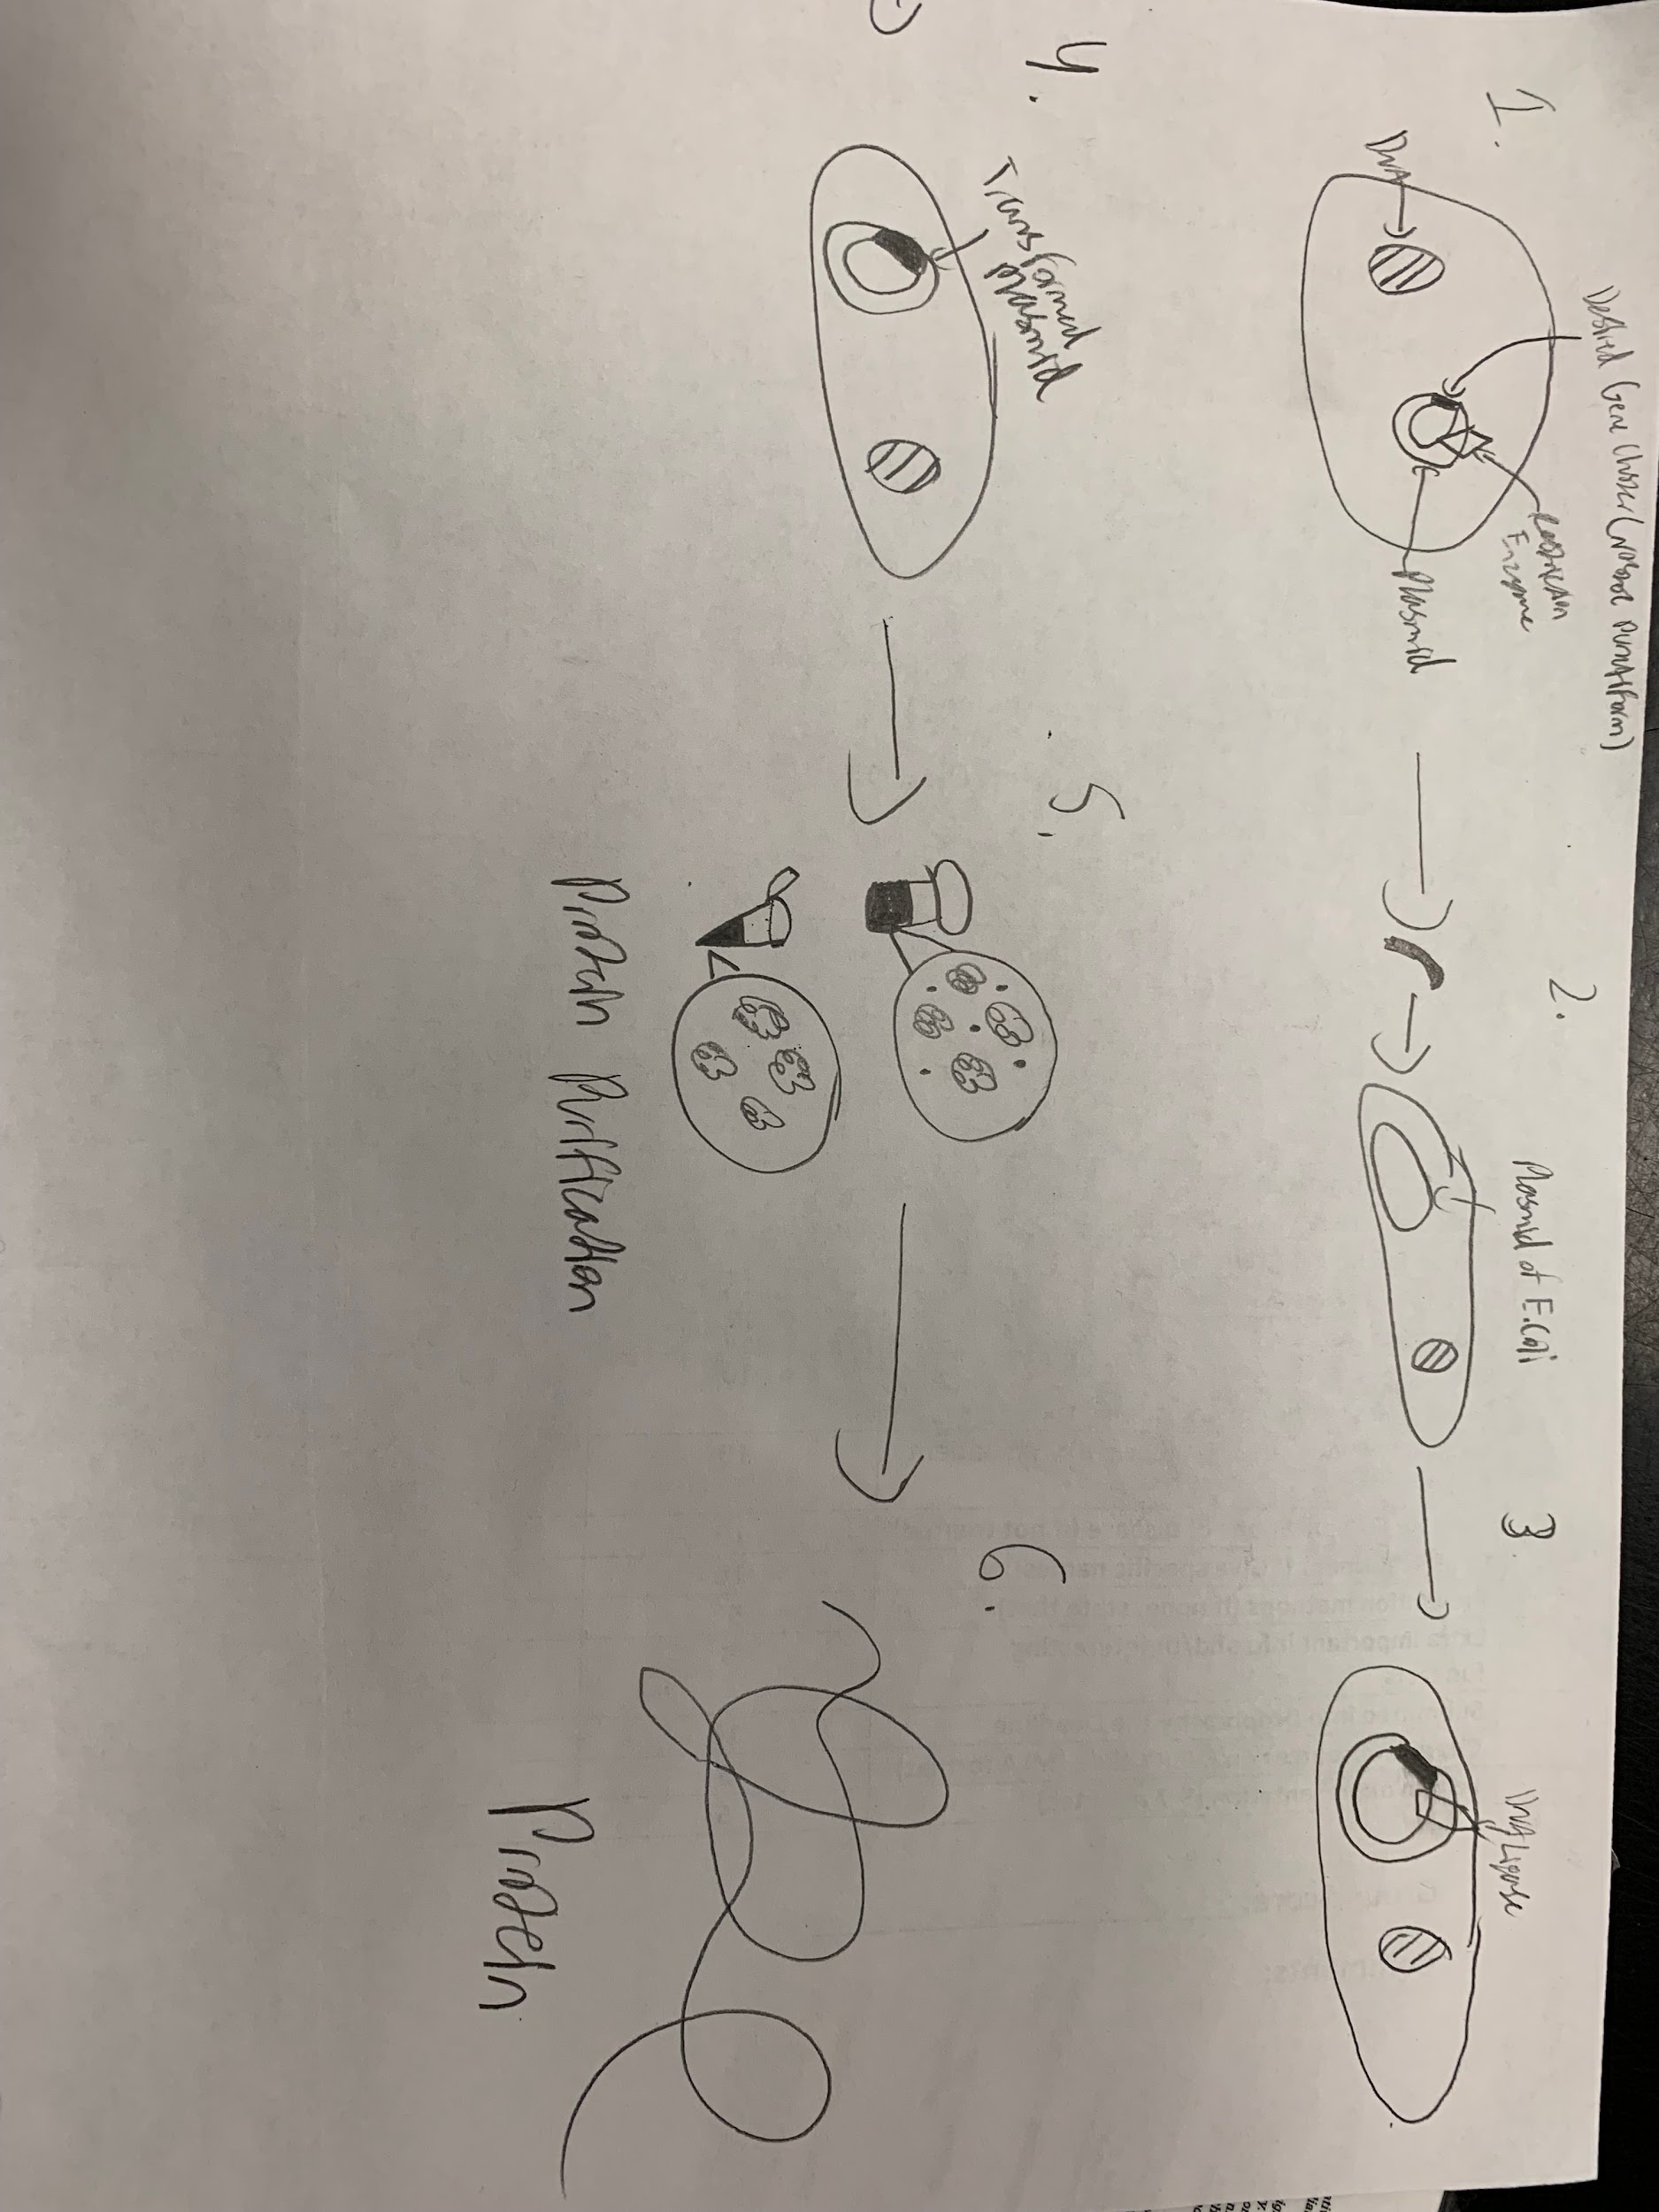 1.
Desired Gene Cluster
DNA
Restriction
Enzyme
Plasmid
2.
Plasmid of E.Coli
3.
DNA Ligase
4.
Transformed
Plasmid
5.
Protein Purification
6.
Protein